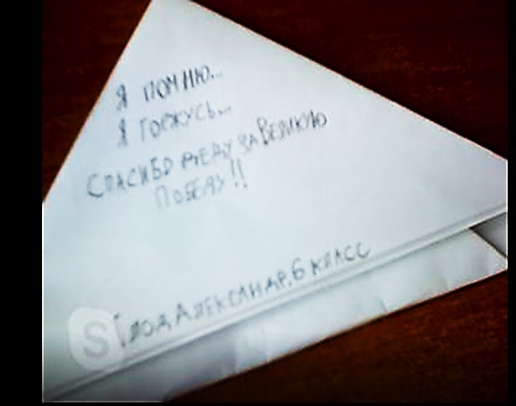 Я ПОМНЮ...
Я ГОРЖУСЬ...
СПАСИБО ДЕДУ ЗА ВЕЛИКУЮ
ПОБЕДУ!!
АЛЕКСАНДР. 6 КЛАСС
S